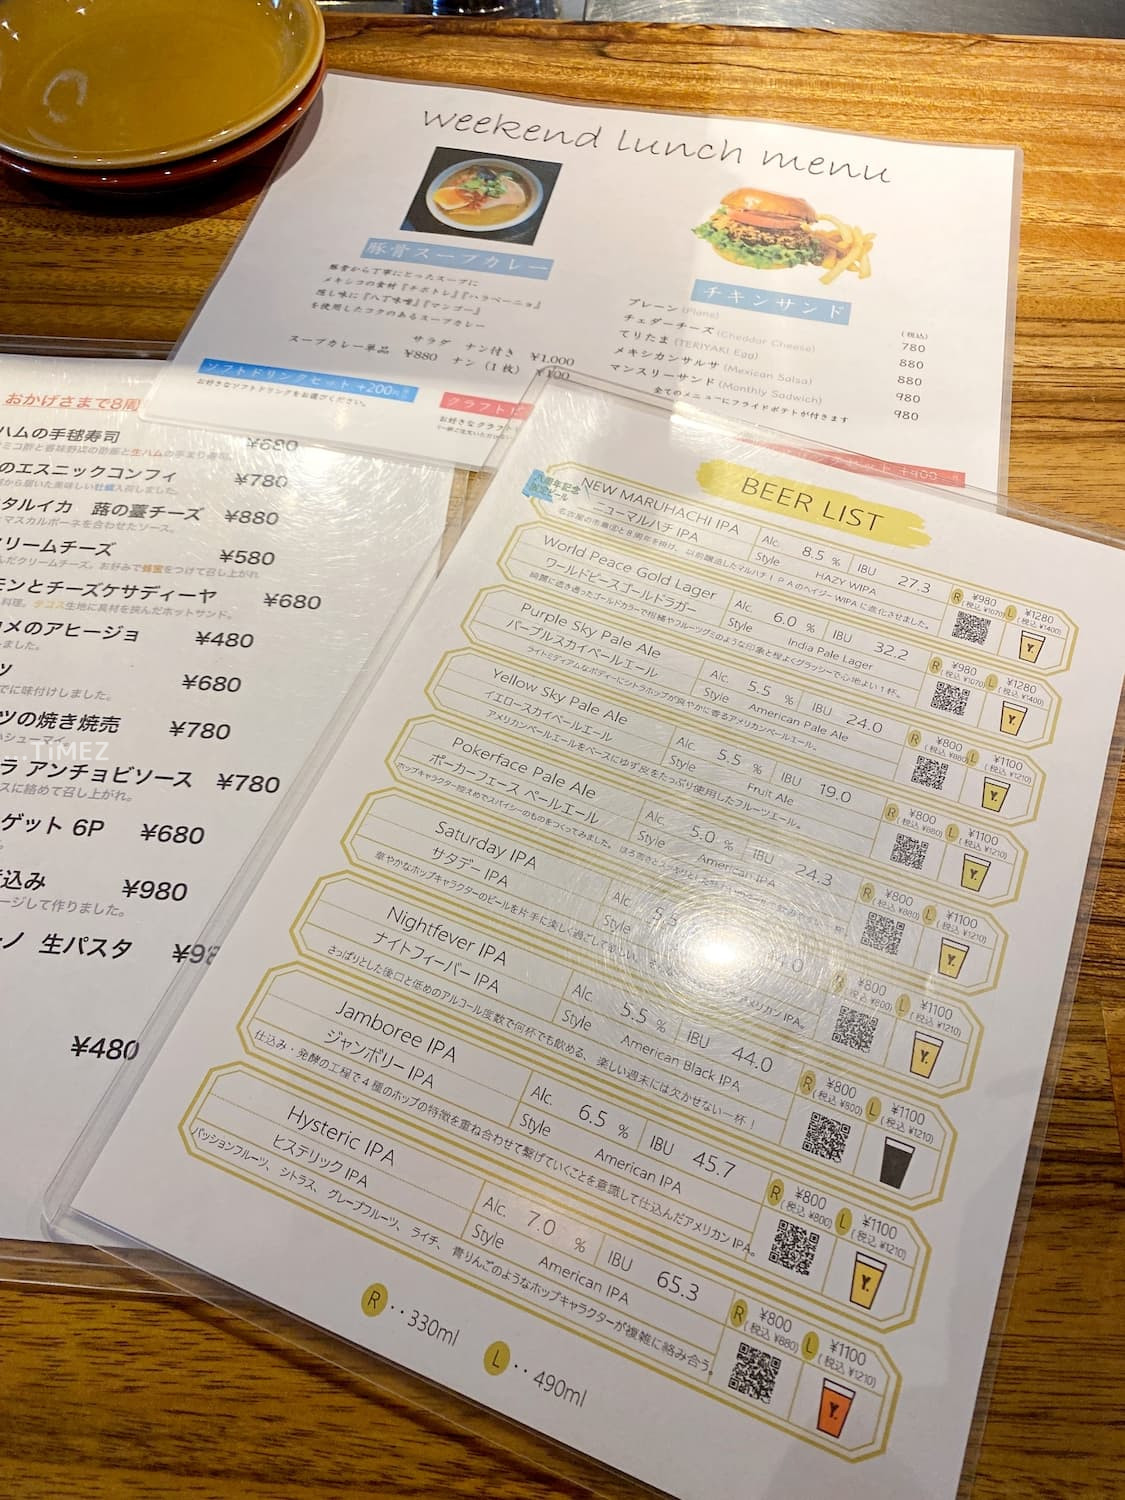 weekend lunch menu
豚骨スープカレー
豚骨から丁寧にとったスープに
メキシコの食材『チポトレ』『ハラペーニョ』
隠し味に『八丁味噌』『マンゴー』
を使用したコクのあるスープカレー
サラダ ナン付き ¥1,000
スープカレー単品 ¥880 ナン(1枚) ¥100
ソフトドリンクセット +200
お好きなソフトドリンクをお選びください。
チキンサンド
(税込)
プレーン (Plane) 780
チェダーチーズ (Cheddar Cheese) 880
てりたま (TERIYAKI Egg) 880
メキシカンサルサ (Mexican Salsa) 980
マンスリーサンド (Monthly Sadwich) 980
全てのメニューにフライドポテトが付きます
おかげさまで8周
ハムの手毬寿司
のエスニックコンフィ ¥780
タルイカ 蕗の薹チーズ ¥880
マスカルポーネを合わせたソース。
クリームチーズ ¥580
んだクリームチーズ。お好みで蜂蜜をつけて召し上がれ
モンとチーズケサディーヤ ¥680
料理。タコス生地に具材を挟んだホットサンド。
コメのアヒージョ ¥480
しました。
ツ ¥680
でに味付けしました。
ツの焼き焼売 ¥780
シューマイ
TiMEZ
ラ アンチョビソース ¥780
スに絡めて召し上がれ。
ゲット 6P ¥680
込み ¥980
ージして作りました。
ノ 生パスタ
¥480
BEER LIST
八周年記念
限定ビール
NEW MARUHACHI IPA
ニューマルハチ IPA
Alc. 8.5 % IBU 27.3
Style HAZY WIPA
R ¥980 (税込 ¥1070) L ¥1280 (税込 ¥1400)
World Peace Gold Lager
ワールドピースゴールドラガー
Alc. 6.0 % IBU 32.2
Style India Pale Lager
綺麗に透き通ったゴールドカラーで柑橘やフルーツグミのような印象と程よくグラッシーで心地よい1杯。
R ¥980 (税込 ¥1070) L ¥1280 (税込 ¥1400)
Purple Sky Pale Ale
パープルスカイペールエール
Alc. 5.5 % IBU 24.0
Style American Pale Ale
ライトミディアムなボディーにシトラホップが爽やかに香るアメリカンペールエール。
R ¥800 (税込 ¥880) L ¥1100 (税込 ¥1210)
Yellow Sky Pale Ale
イエロースカイペールエール
Alc. 5.5 % IBU 19.0
Style Fruit Ale
アメリカンペールエールをベースにゆず皮をたっぷり使用したフルーツエール。
R ¥800 (税込 ¥880) L ¥1100 (税込 ¥1210)
Pokerface Pale Ale
ポーカーフェース ペールエール
Alc. 5.0 % IBU 24.3
Style American IPA
R ¥800 (税込 ¥880) L ¥1100 (税込 ¥1210)
Saturday IPA
サタデー IPA
Alc. 5.5
Style
R ¥800 (税込 ¥800) L ¥1100 (税込 ¥1210)
Nightfever IPA
ナイトフィーバー IPA
Alc. 5.5 % IBU 44.0
Style American Black IPA
さっぱりとした後口と低めのアルコール度数で何杯でも飲める、楽しい週末には欠かせない一杯!
R ¥800 (税込 ¥800) L ¥1100 (税込 ¥1210)
Jamboree IPA
ジャンボリー IPA
Alc. 6.5 % IBU 45.7
Style American IPA
仕込み・発酵の工程で4種のホップの特徴を重ね合わせて繋げていくことを意識して仕込んだアメリカンIPA。
R ¥800 (税込 ¥800) L ¥1100 (税込 ¥1210)
Hysteric IPA
ヒステリック IPA
Alc. 7.0 % IBU 65.3
Style American IPA
パッションフルーツ、シトラス、グレープフルーツ、ライチ、青りんごのようなホップキャラクターが複雑に絡み合う。
R ¥800 (税込 ¥880) L ¥1100 (税込 ¥1210)
R ・・330ml
L ・・490ml